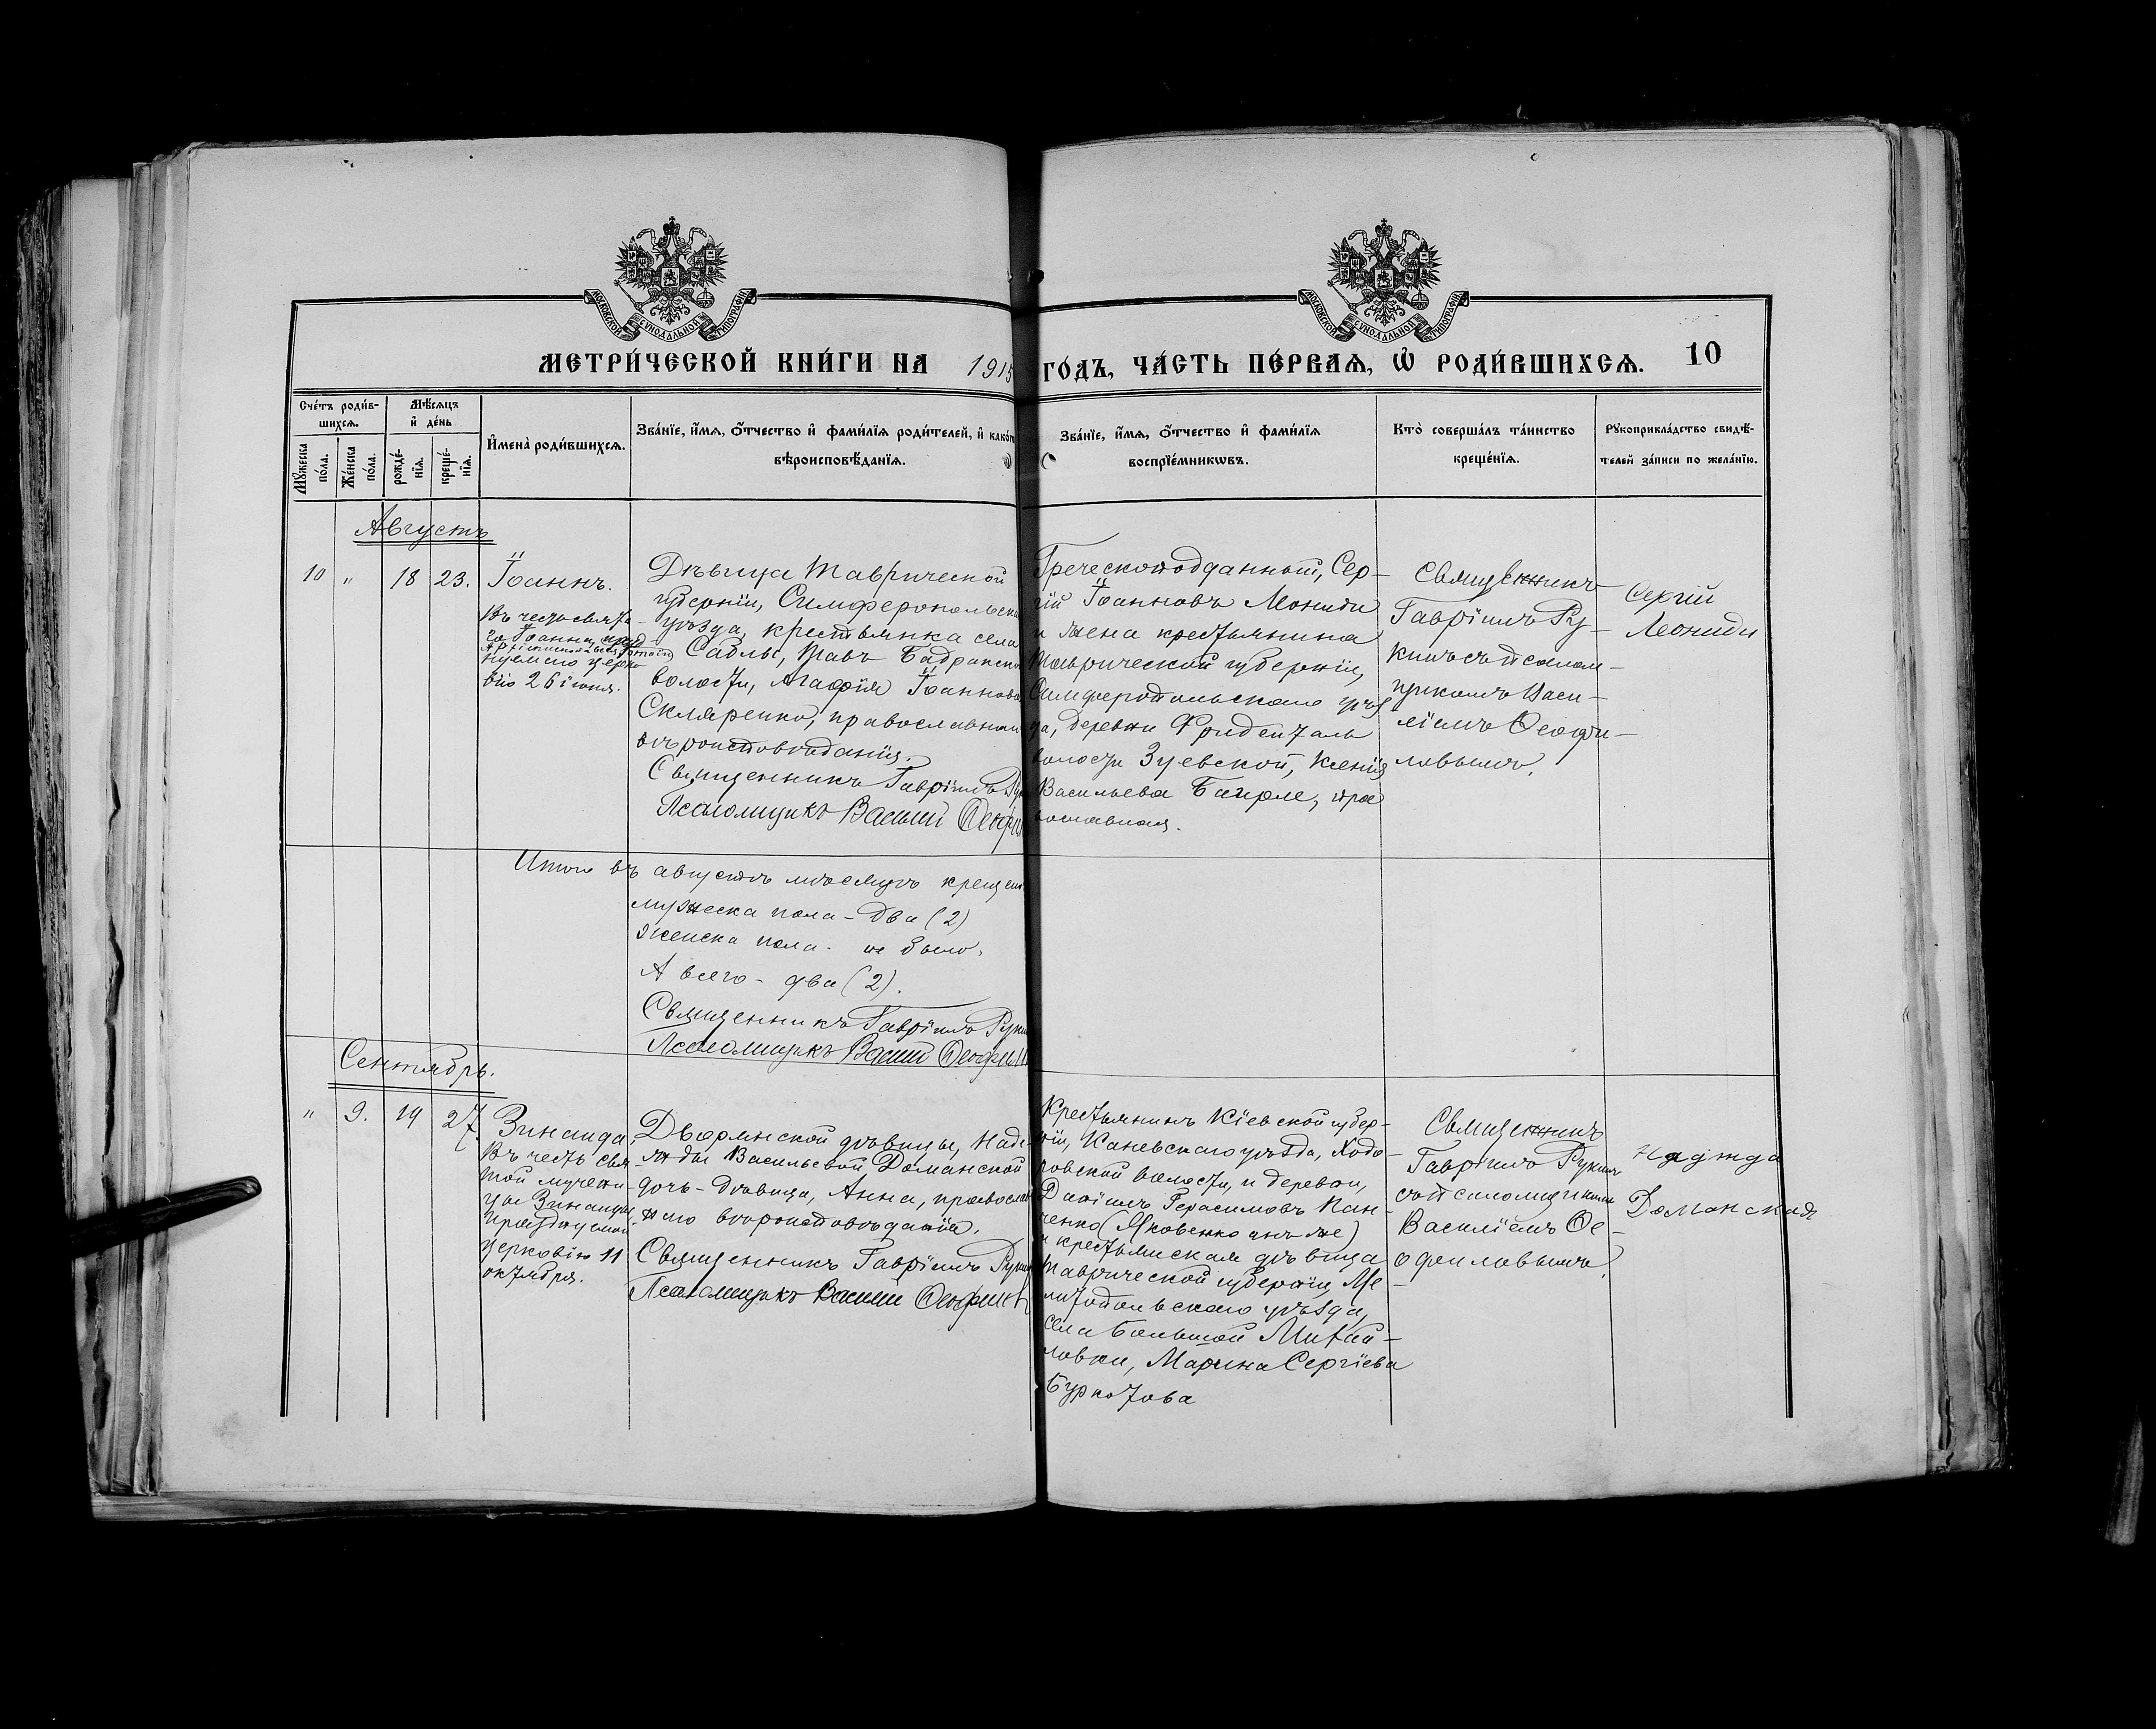 МОСКОВСКОЙ СѴНОДАЛЬНОЙ ТИПОГРАФІИ
МОСКОВСКОЙ СѴНОДАЛЬНОЙ ТИПОГРАФІИ
МЕТРИ́ЧЕСКОЙ КНИ́ГИ НА 1915 ГО́ДЪ, ЧА́СТЬ ПЕ́РВАЯ, Ѡ҆ РОДИ́ВШИХСѦ. 10
Сче́тъ роди́в-
шихсѧ.
Мѣ́сѧцъ
и҆ де́нь
Мꙋ́жеска
по́ла.
Же́нска
по́ла.
рожде́-
нїѧ.
креще́-
нїѧ.
И҆мена̀ роди́вшихсѧ.
Зва́нїе, и҆́мѧ, ѻ҆́тчество и҆ фами́лїѧ роди́телей, и҆ како́гѡ
вѣроисповѣ́данїѧ.
Зва́нїе, и҆́мѧ, ѻ҆́тчество и҆ фами́лїѧ
воспрїе́мникѡвъ.
Кто̀ соверша́лъ та́инство
креще́нїѧ.
Рꙋкоприкла́дство свидѣ́-
телей за́писи по жела́нїю.
Августъ
10 " 18 23.
Іоаннъ.
Въ честь свята-
го Іоанна,
26 іюня.
Дѣвица Таврической
губерніи, Симферопольска
уѣзда, крестьянка села
Саблы, Тавъ Бадракской
волости, Агафія Іоаннова
Скляренко, православнаго
вѣроисповѣданія.
Священникъ Гавріилъ Рук
Псаломщикъ Василій Ѳеофил
Греческоподданный, Сер-
гій Іоанновъ Леониди
и жена крестьянина
Таврической губерніи,
Симферопольскаго уѣз
да, деревни Фриденталь
волости Зуевской, Ксенія
Васильева Байрле, пра
вославная.
Священникъ
Гавріилъ Ру-
кинъ съ псалом-
щикомъ Васи-
ліемъ Ѳеофи-
ловымъ.
Сергій
Леониди
Итого въ августѣ мѣсяцѣ крещен
мужеска пола - два (2)
женска пола - не было.
А всего - два (2).
Священникъ Гавріилъ Рукин
Псаломщикъ Василій Ѳеофил
Сентябрь.
" 9. 19 27.
Зинаида,
Въ честь свя-
той мучени-
цы Зинаиды,
празднуемой
церковію 11
октября.
Дворянской дѣвицы, Наде-
жды Васильевой Доманской
дочь-дѣвица, Анна, православ
наго вѣроисповѣданія.
Священникъ Гавріилъ Рукин
Псаломщикъ Василій Ѳеофил
Крестьянинъ Кіевской губер-
ніи, Каневскаго уѣзда, Ходо-
ровской волости, и деревни,
Даніилъ Герасимовъ Пан-
ченко (Яковенко онъ же)
и крестьянская дѣвица
Таврической губерніи, Ме-
литопольскаго уѣзда,
села Большой Михай-
ловки, Марина Сергіева
Буркотова
Священникъ
Гавріилъ Рукинъ
съ псаломщикомъ
Василіемъ Ѳе-
офиловымъ.
Надежда
Доманская